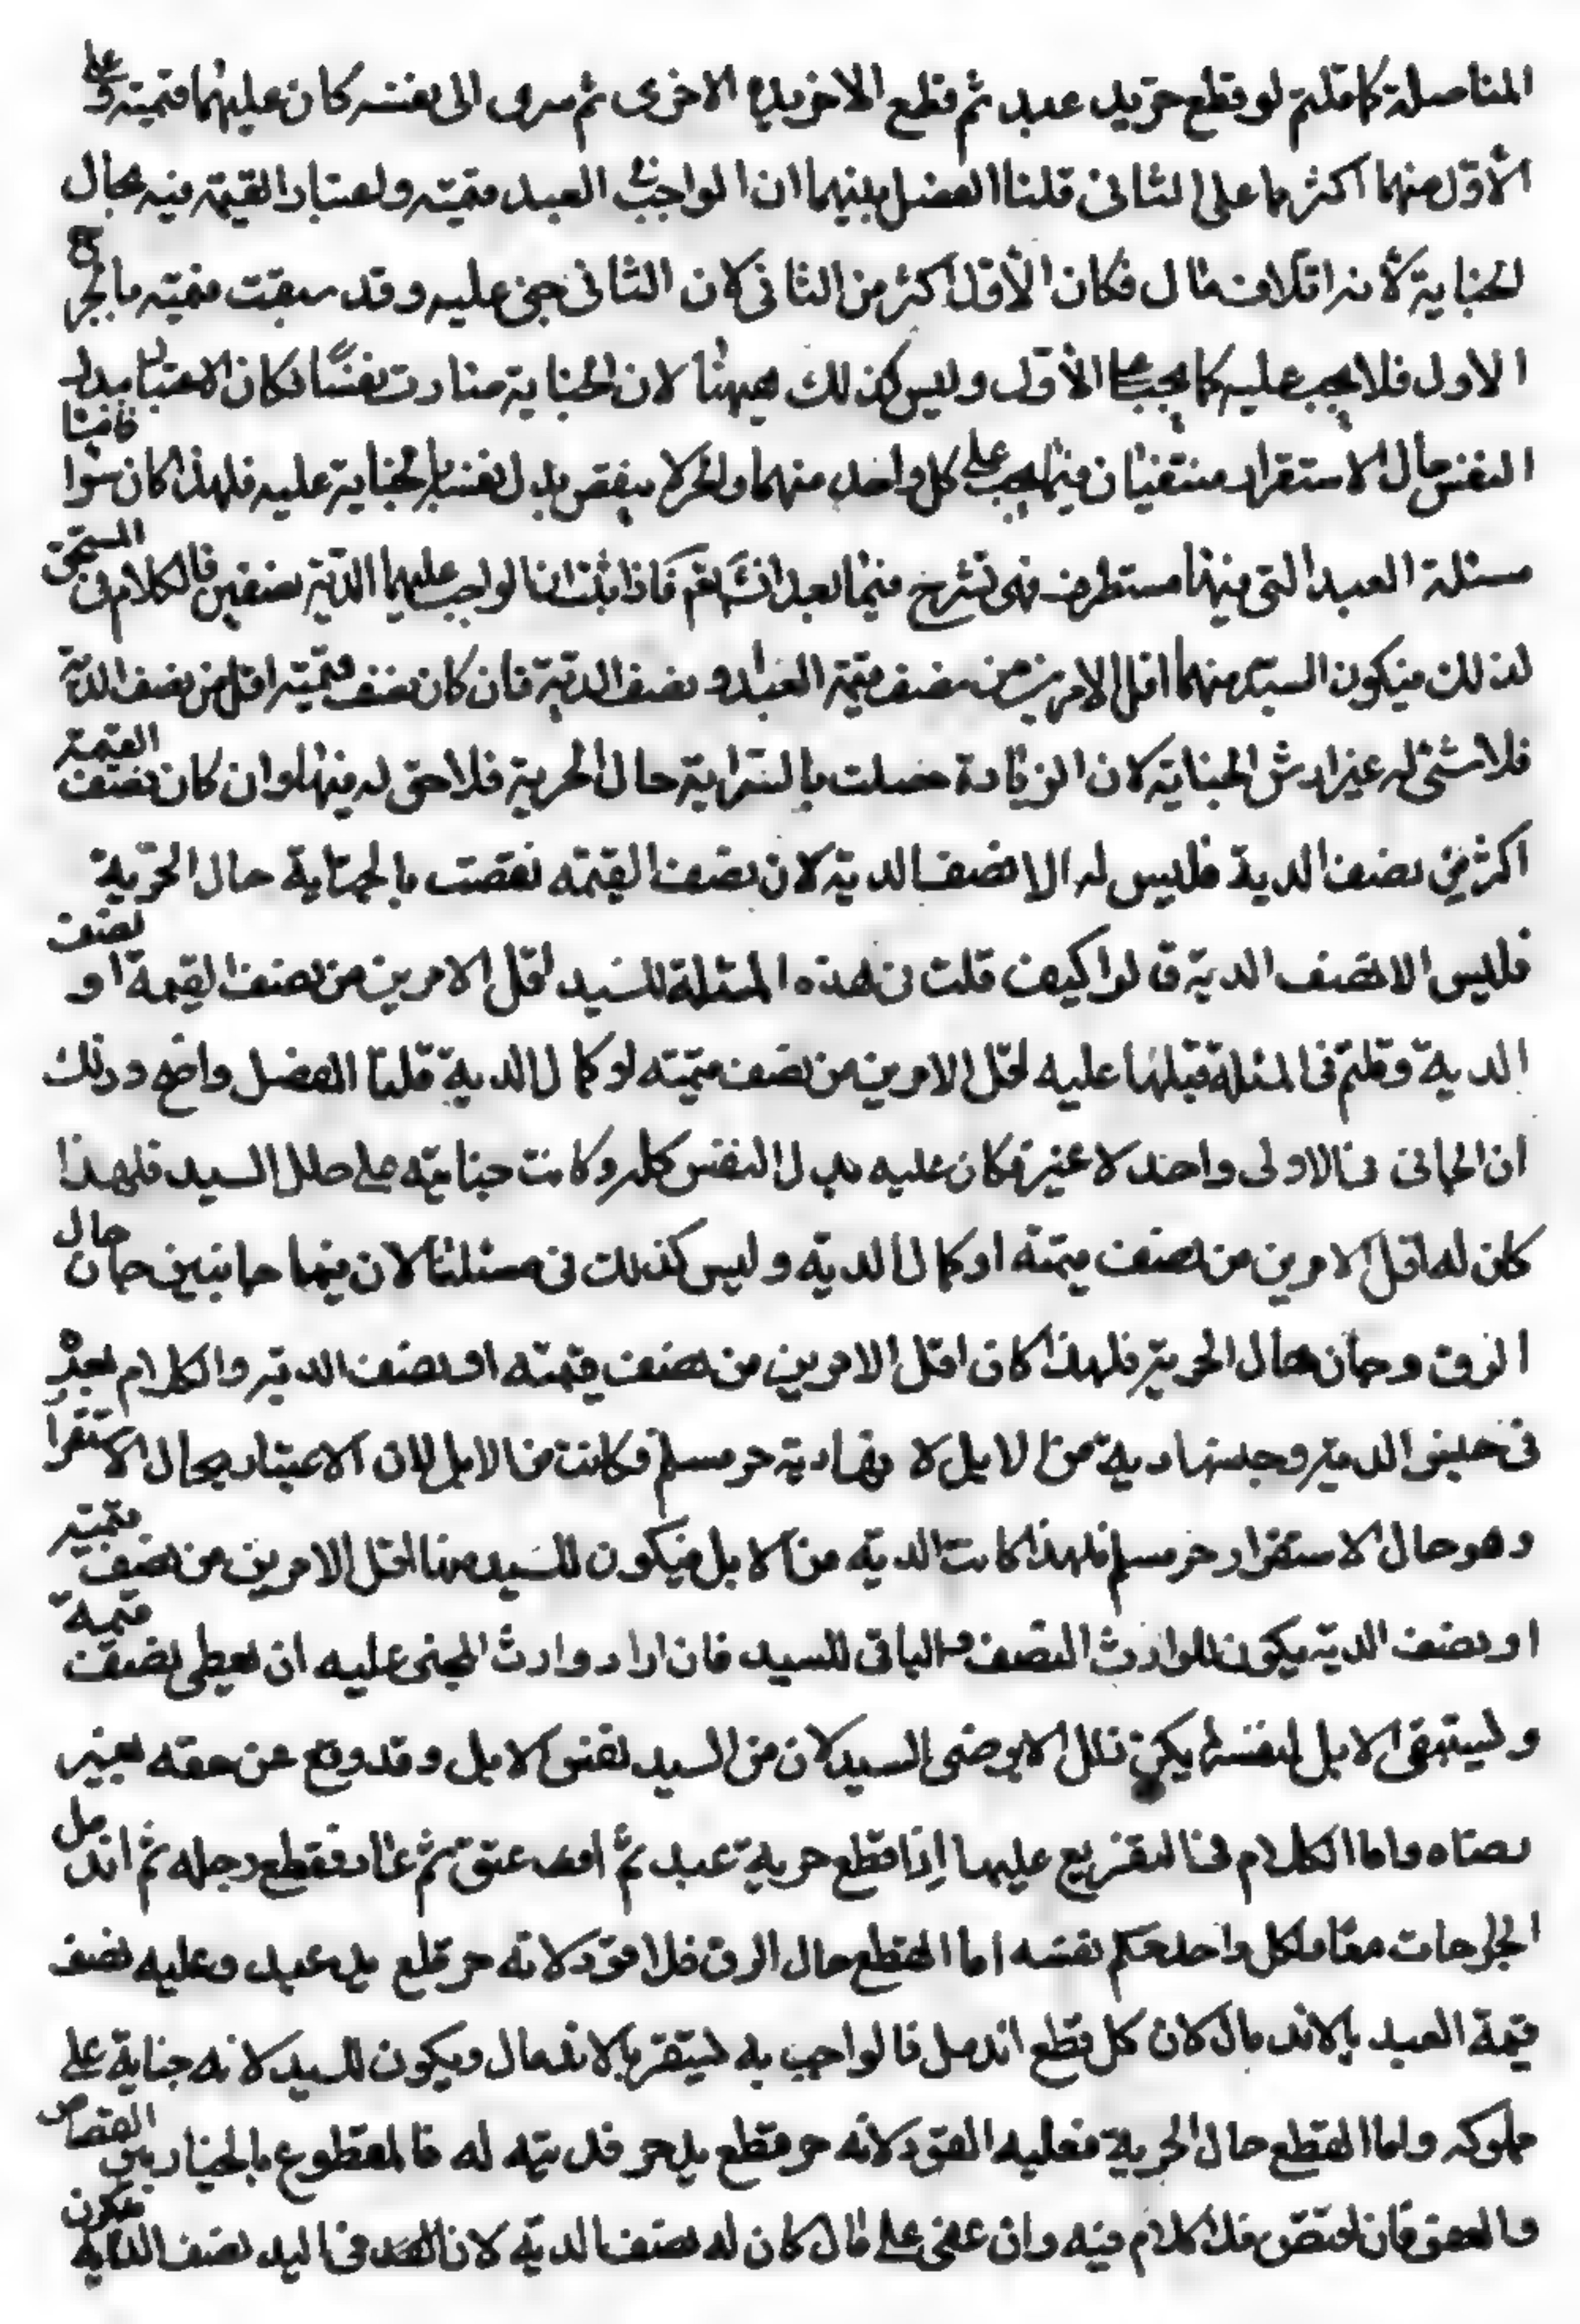 المفاصلة كما قلتم لو قطع حر يد عبد ثم قطع الاخر يده الاخرى ثم سرى الى نفسه كان عليهما قيمته و على
الأول منهما اكثر مما على الثانى قلنا الفصل بينهما ان الواجب فى العبد قيمته ولعتبار القيمة فيه بحال
الجناية لأنه اتلاف مال فكان الأول اكثر من الثانى لان الثانى جنى عليه وقد سبقت قيمته بالجرح
الاول فلا يجب عليه كما يجب على الأول وليس كذلك هيهنا لان الجناية صارت نفسًا فكان الاعتبار ببدل
النفس حال الاستقرار فيتفقان فيما يجب على كل واحد منهما والحر لا ينقص بدل نفسه بالجناية عليه فلهذا كان سوا فاما
مسئلة العبد التى فيها مستطرف فهى تشرح فيما بعد انشاء الله تعم فاذا ثبت ان الواجب عليهما الدية نصفين فالكلام فى المستحق
لذلك فيكون للسيد منهما اقل الامرين من نصف قيمة العبد او نصف الدية فان كان نصف قيمته اقل من نصف الدية
فلا شئ له غير ارش الجناية لان الزيادة حصلت بالسراية حال الحرية فلا حق له فيها وان كان نصف القيمة
اكثر من نصف الدية فليس له الا نصف الدية لان نصف القيمه نقصت بالجناية حال الحرية
فليس الا نصف الدية قالوا كيف قلت فى هذه المسئلة للسيد اقل الامرين من نصف القيمة او نصف
الدية وقلتم فى المسئلة قبلها عليه اقل الامرين من نصف قيمته او كمال الدية قلنا الفصل واضح وذلك
ان الجانى فى الاولى واحد لا غير فكان عليه بدل النفس كله وكانت جنايته على ملك السيد فلهذا
كان له اقل الامرين من نصف قيمته او كمال الديه وليس كذلك فى مسئلتنا لان فيها جانبين جان حال
الرق وجان حال الحرية فلهذا كان اقل الامرين من نصف قيمته او نصف الدية والكلام بعد
فى جنس الدية وجنسها دية من الابل لانها دية حر مسلم وكانت من الابل لان الاعتبار بحال الاستقرار
وهو حال الاستقرار حر مسلم فلهذا كانت الديه من الابل فيكون للسيد منها اقل الامرين من نصف قيمته
او نصف الديه يكون للوارث النصف والباقى للسيد فان اراد وارث المجنى عليه ان يعطى نصف قيمة
وليستبقى الابل لنفسه لم يكن ذلك الا برضى السيد لان من السيد نفس الابل وقد وقع عن حقه بغير
رضاه واما الكلام فى التفريع عليها اذا قطع حر يد عبد ثم اعتق ثم عاد فقطع رجله ثم اندمل
الجراحات معا فلكل واحد حكم نفسه اما القطع حال الرق فلا قود لانه حر قطع يد عبد وعليه نصف
قيمة العبد بالاندمال لان كل قطع اندمل فالواجب به يستقر بالاندمال ويكون للسيد لانه جناية على
مملوكه واما القطع حال الحرية فعليه القود لانه حر قطع يد حر فديته له فالمقطوع بالخيار بين القصاص
والعفو فان اقتص فلا كلام فيه وان عفى على مال كان له نصف الديه لان فى اليد نصف الدية فيكون